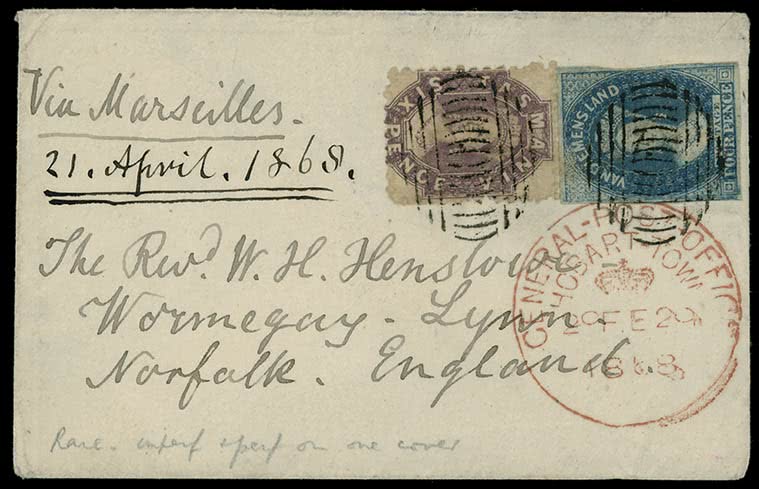 Via Marseilles.
21. April. 1868.
TASMANIA
SIXPENCE
VAN DIEMENS LAND
POSTAGE
FOUR PENCE
GENERAL-POST OFFICE
HOBART TOWN
FE 29
1868
The Revd. W. H. Henslowe
Wormegay - Lynn.
Norfolk. England.
Rare. imperf & perf on one cover